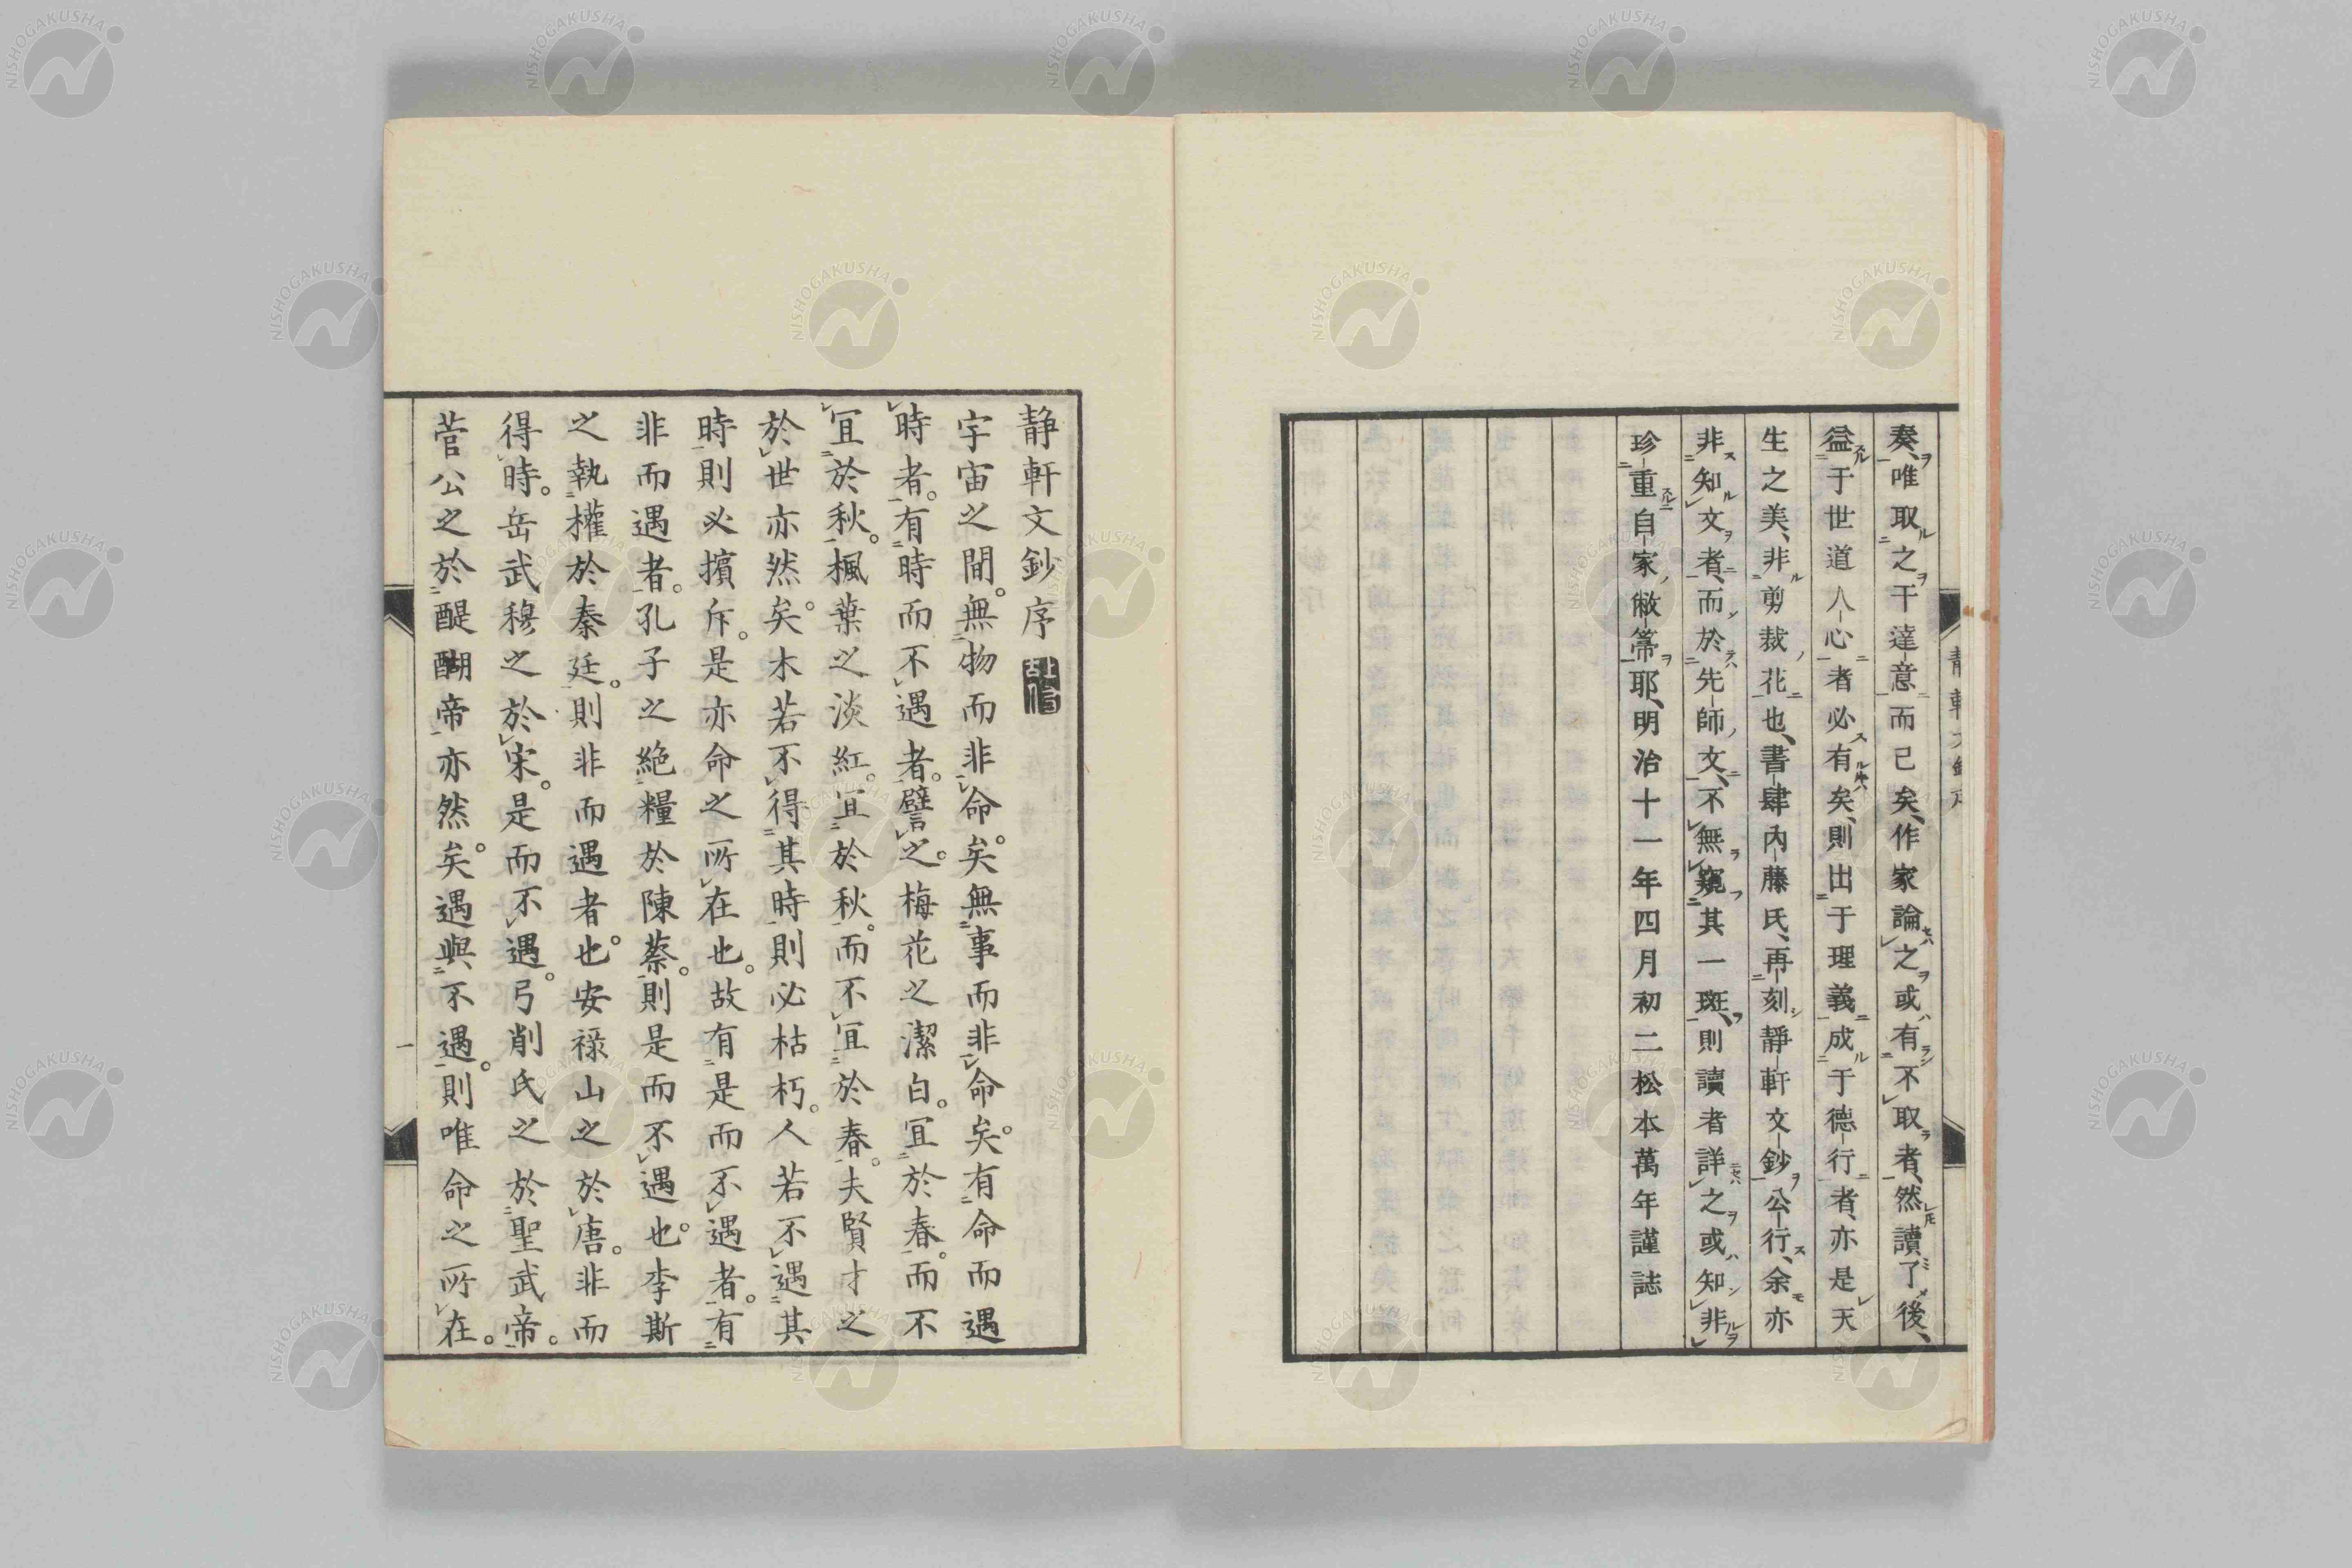 奏唯取之于達意而已矣、作家論之或有不取者、然讀了後、
益于世道人心者必有矣、則出于理義成于德行者、亦是天
生之美、非剪裁花也、書肆內藤氏、再刻靜軒文鈔公行、余亦
非知文者、而於先師文、不無窺其一斑、則讀者詳之或知非
珍重自家敝箒耶、明治十一年四月初二松本萬年謹誌
静軒文鈔序
宇宙之間。無物而非命矣。無事而非命矣。有命而遇
時者。有時而不遇者。譬之。梅花之潔白。宜於春。而不
宜於秋。楓葉之淡紅。宜於秋。而不宜於春。夫賢才之
於世亦然矣。木若不得其時則必枯朽。人若不遇其
時則必擯斥。是亦命之所在也。故有是而不遇者。有
非而遇者。孔子之絶糧於陳蔡。則是而不遇也。李斯
之執權於秦廷。則非而遇者也。安祿山之於唐。非而
得時。岳武穆之於宋。是而不遇。弓削氏之於聖武帝。
菅公之於醍醐帝亦然矣。遇與不遇。則唯命之所在。
一
NISHOGAKUSHA